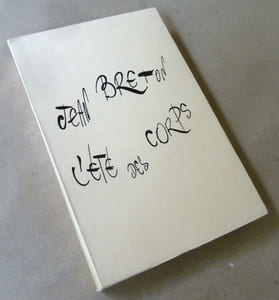 JEAN BRETON
L'ÉTÉ DES CORPS